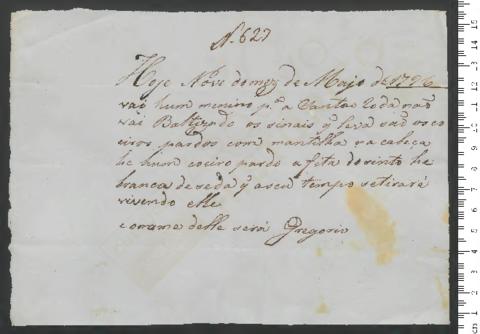 N. 627
Hoje Nove do mez de Majo de 1796
vai hum menino p.ª a Santa Roda naõ
vai Baltizado os sinais q leva saõ os co
eiros pardos com mantilha na cabeça
he hum coeiro pardo a fita do sinto he
branca de seda q a seu tempo setirará
vivendo elle
e onome delle será Gregorio